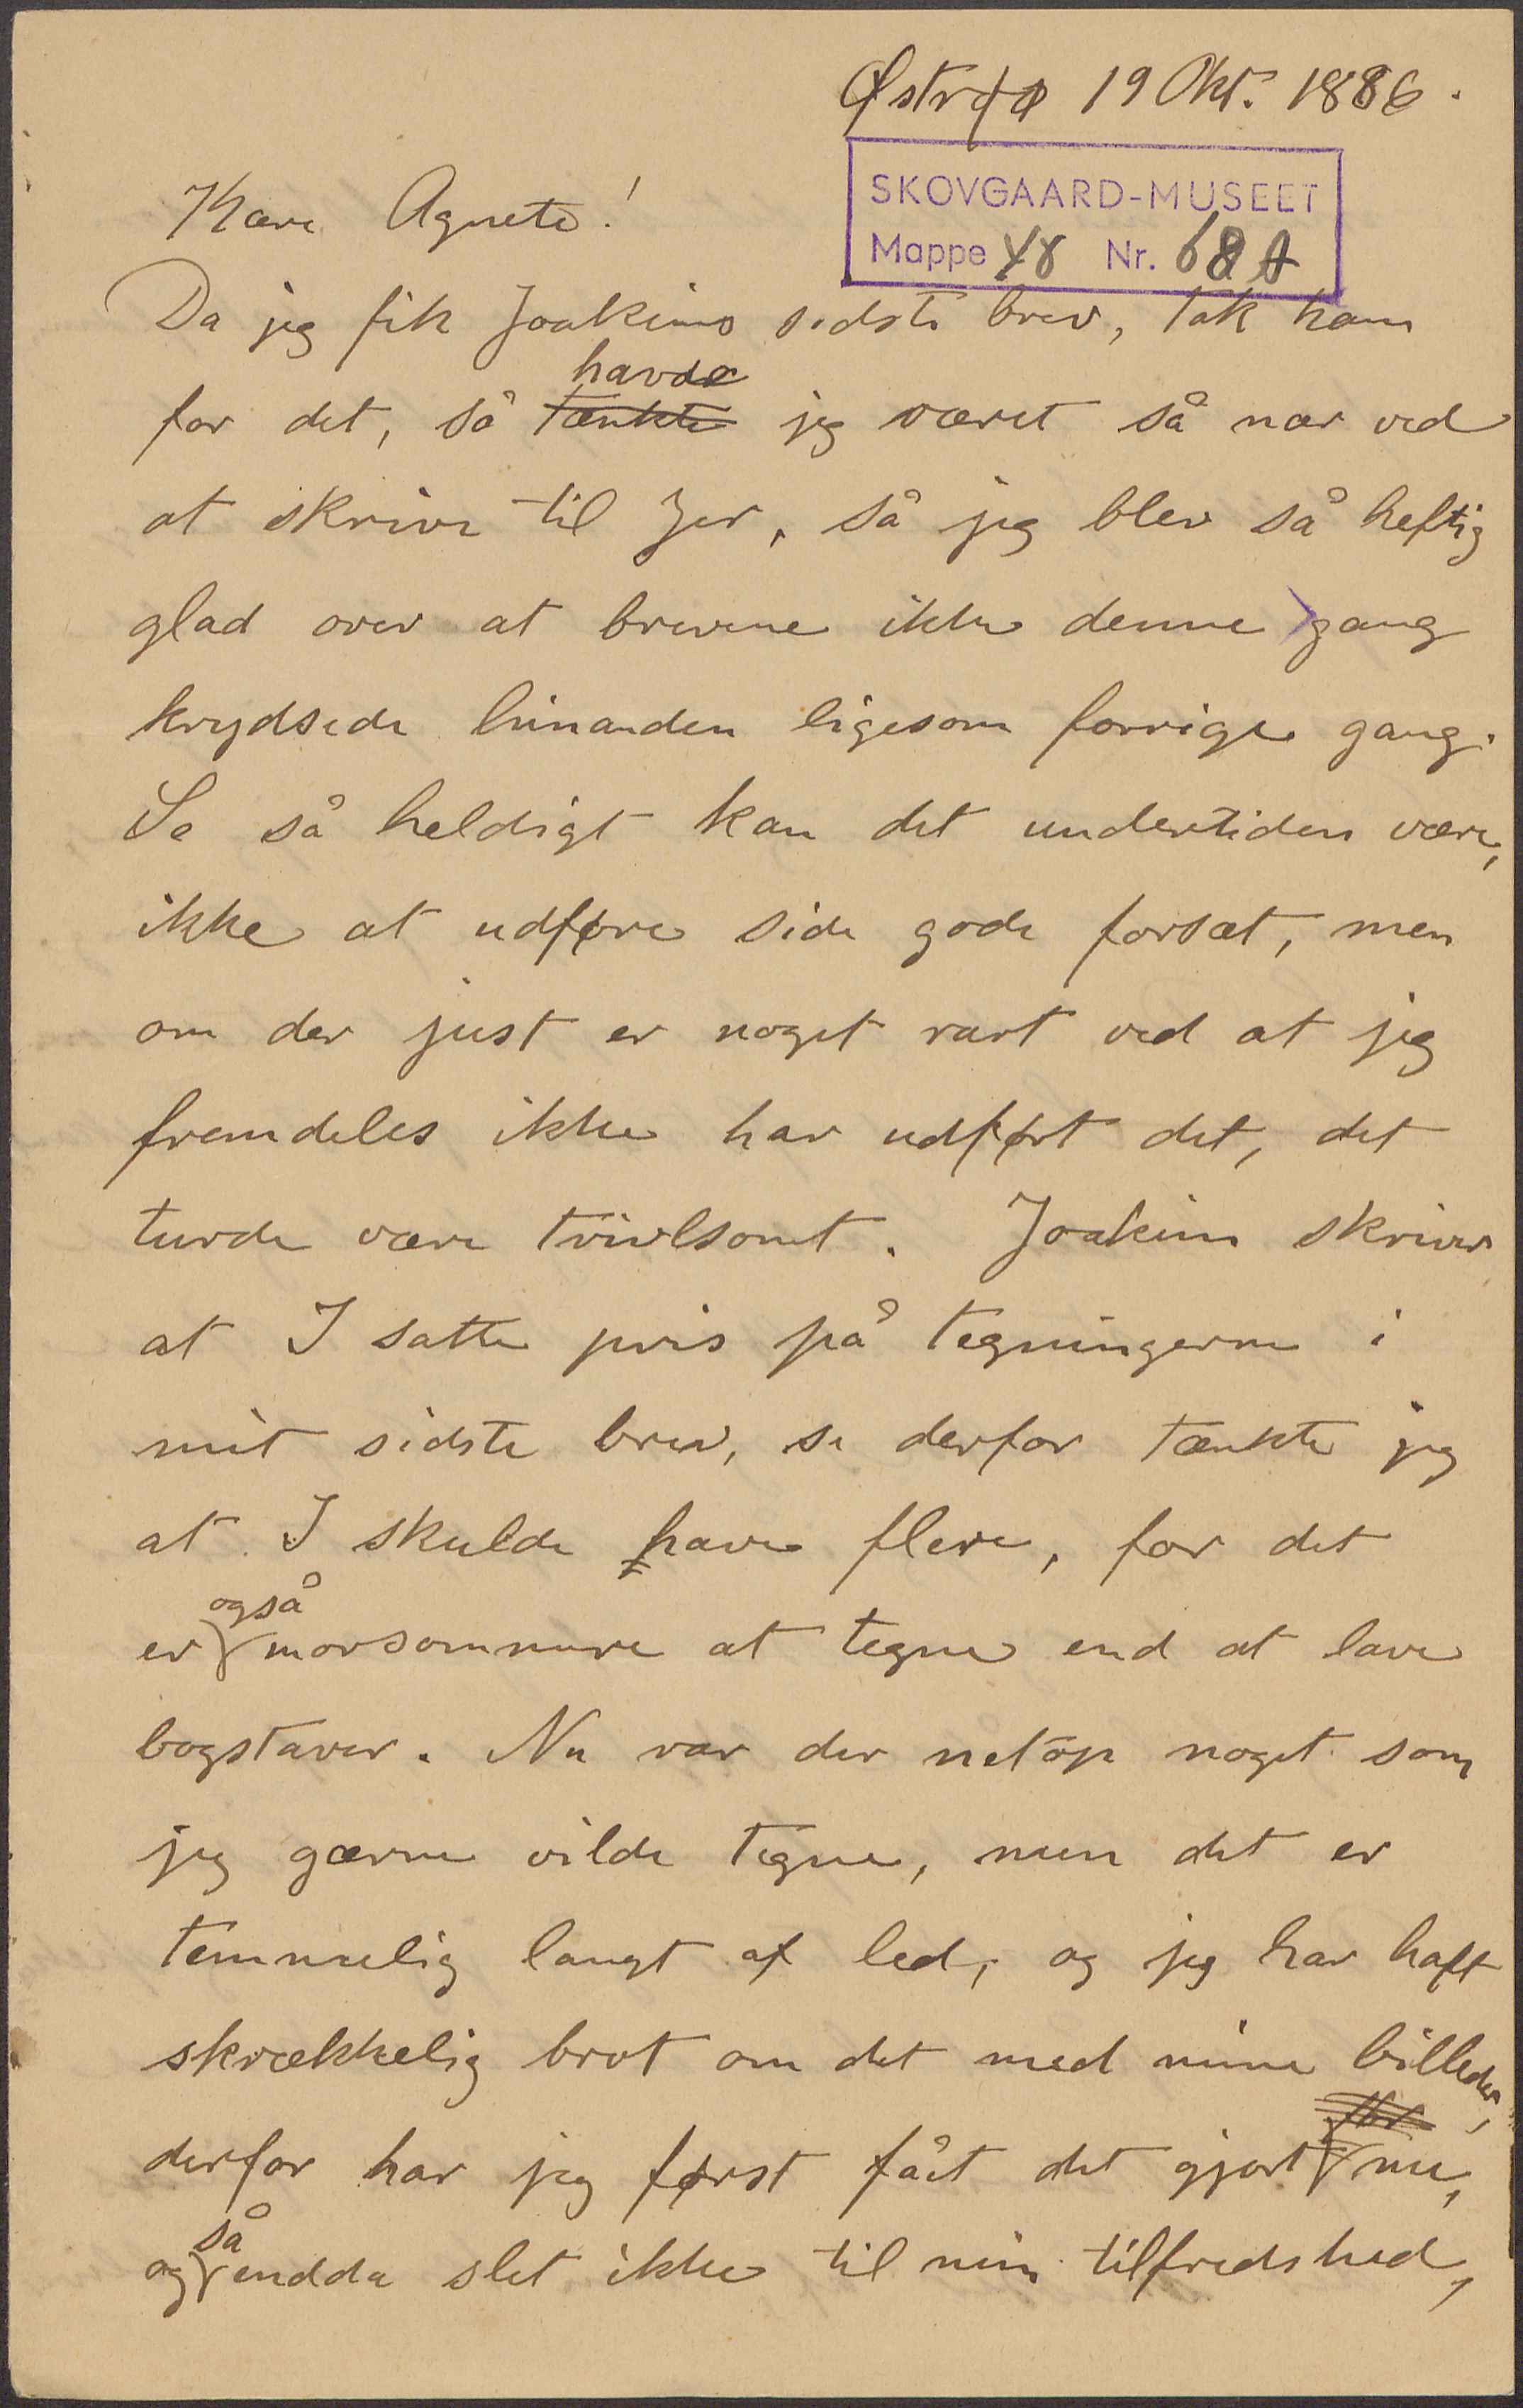 Østrjø 19 Okt. 1886.
SKOVGAARD-MUSEET
Mappe 48 Nr. 68 A
Kære Agnete!
Da jeg fik Joakims sidste brev, tak ham
havde
for det, så tænkte jeg været så nær ved
at skrive til Jer, så jeg blev så heftig
glad over at brevene ikke denne gang
krydsede hinanden ligesom forrige gang.
Se så heldigt kan det undertiden være,
ikke at udføre side gode forsæt, men
om der just er noget rart ved at jeg
fremdeles ikke har udført det, det
turde være tvivlsomt. Joakim skriver
at I satte pris på tegningerne i
mit sidste brev, se derfor tænkte jeg
at I skulde have flere, for det
også
er morsommere at tegne end at lave
bogstaver. Nu var der netop noget som
jeg gærne vilde tegne, men det er
temmelig langt af led, og jeg har haft
skrækkelig brot om det med mine billeder,
derfor har jeg først fåt det gjort nu,
så
og endda slet ikke til min tilfredshed,